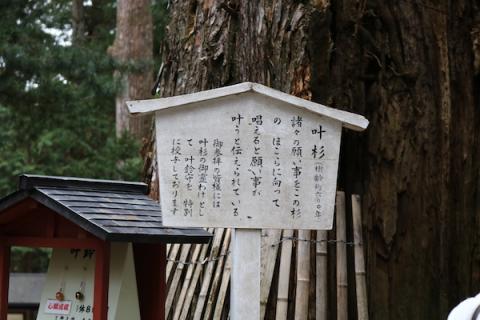 叶杉(樹齢約六〇〇年)
諸々の願い事をこの杉
の ほこらに向って
唱えると願い事が
叶うと伝えられている
御参拝の皆様には
叶杉の御霊わけとし
て 叶鈴守を 特別
に授与しております
叶鈴
心願成就